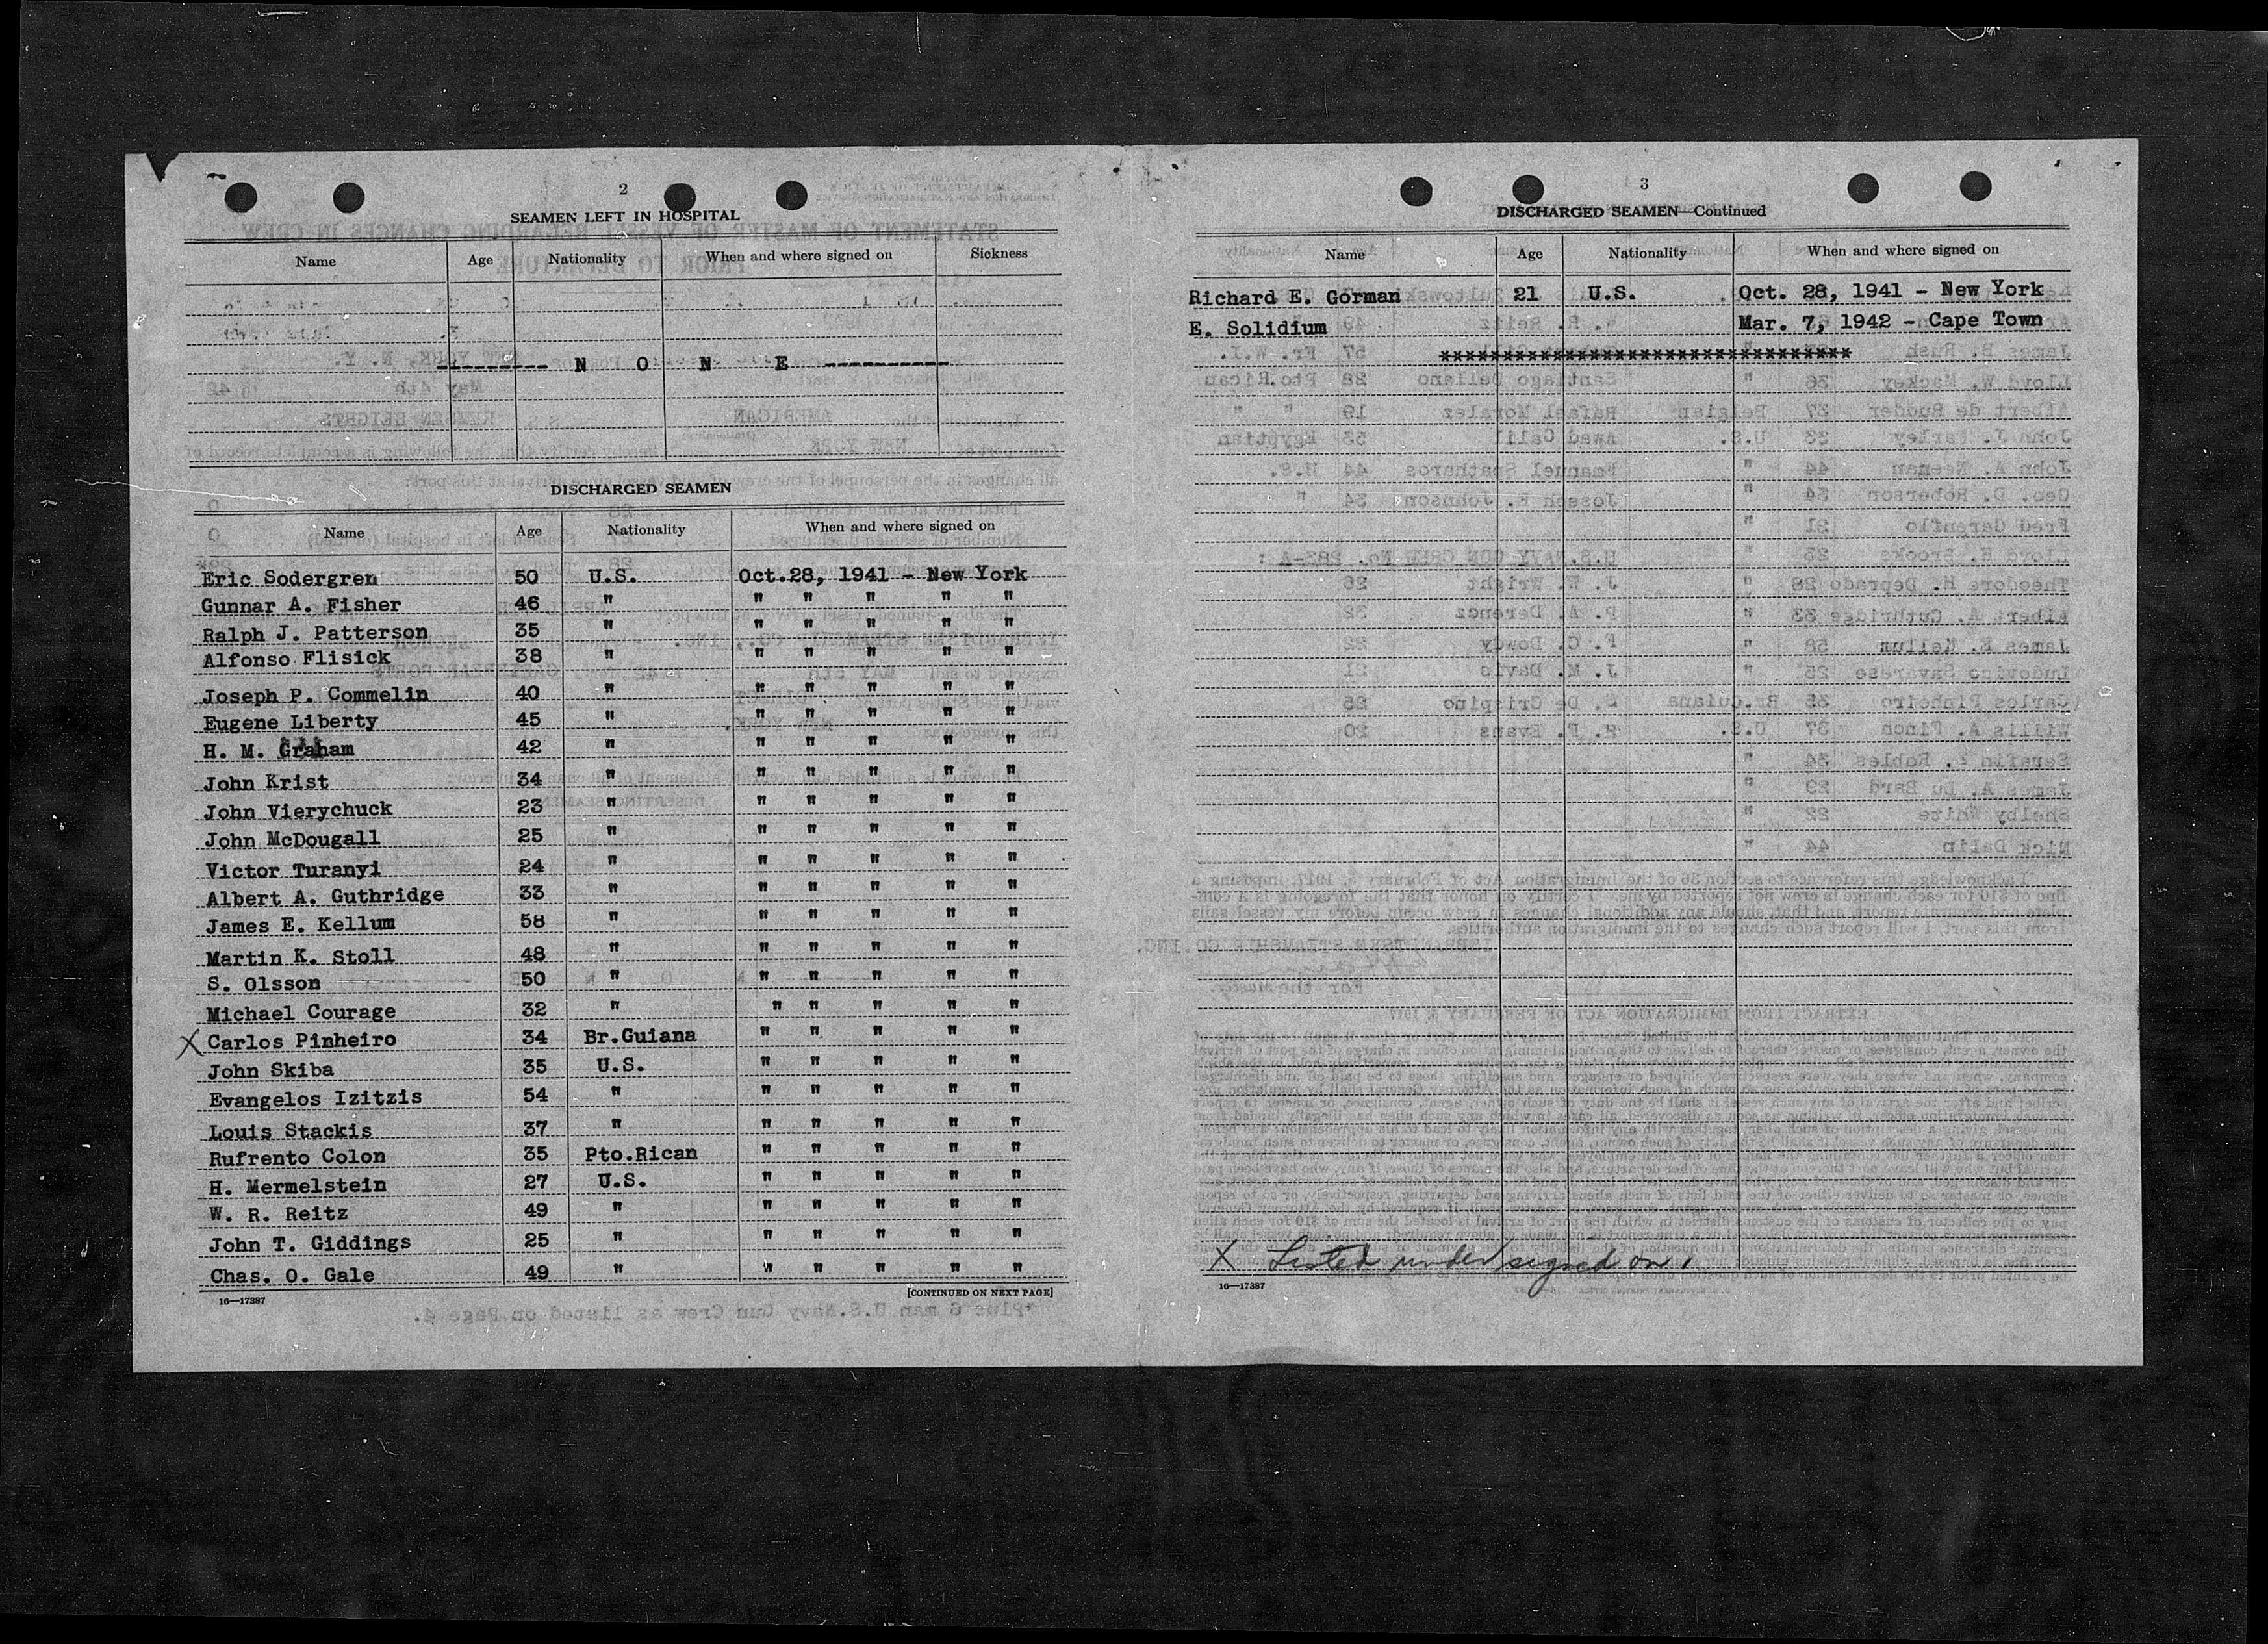 2
SEAMEN LEFT IN HOSPITAL
Name Age Nationality When and where signed on Sickness
--------- N O N E ----------
DISCHARGED SEAMEN
Name Age Nationality When and where signed on
Eric Sodergren 50 U.S. Oct.28, 1941 - New York
Gunnar A. Fisher 46 " " " " " "
Ralph J. Patterson 35 " " " " " "
Alfonso Flisick 38 " " " " " "
Joseph P. Commelin 40 " " " " " "
Eugene Liberty 45 " " " " " "
H. M. Graham 42 " " " " " "
John Krist 34 " " " " " "
John Vierychuck 23 " " " " " "
John McDougall 25 " " " " " "
Victor Turanyi 24 " " " " " "
Albert A. Guthridge 33 " " " " " "
James E. Kellum 58 " " " " " "
Martin K. Stoll 48 " " " " " "
S. Olsson 50 " " " " " "
Michael Courage 32 " " " " " "
X Carlos Pinheiro 34 Br.Guiana " " " " "
John Skiba 35 U.S. " " " " "
Evangelos Izitzis 54 " " " " " "
Louis Stackis 37 " " " " " "
Rufrento Colon 35 Pto.Rican " " " " "
H. Mermelstein 27 U.S. " " " " "
W. R. Reitz 49 " " " " " "
John T. Giddings 25 " " " " " "
Chas. O. Gale 49 " " " " " "
16—17387 [CONTINUED ON NEXT PAGE]
3
DISCHARGED SEAMEN—Continued
Name Age Nationality When and where signed on
Richard E. Gorman 21 U.S. Oct. 28, 1941 - New York
E. Solidium Mar. 7, 1942 - Cape Town
********************************
X Listed under signed on.
16—17387